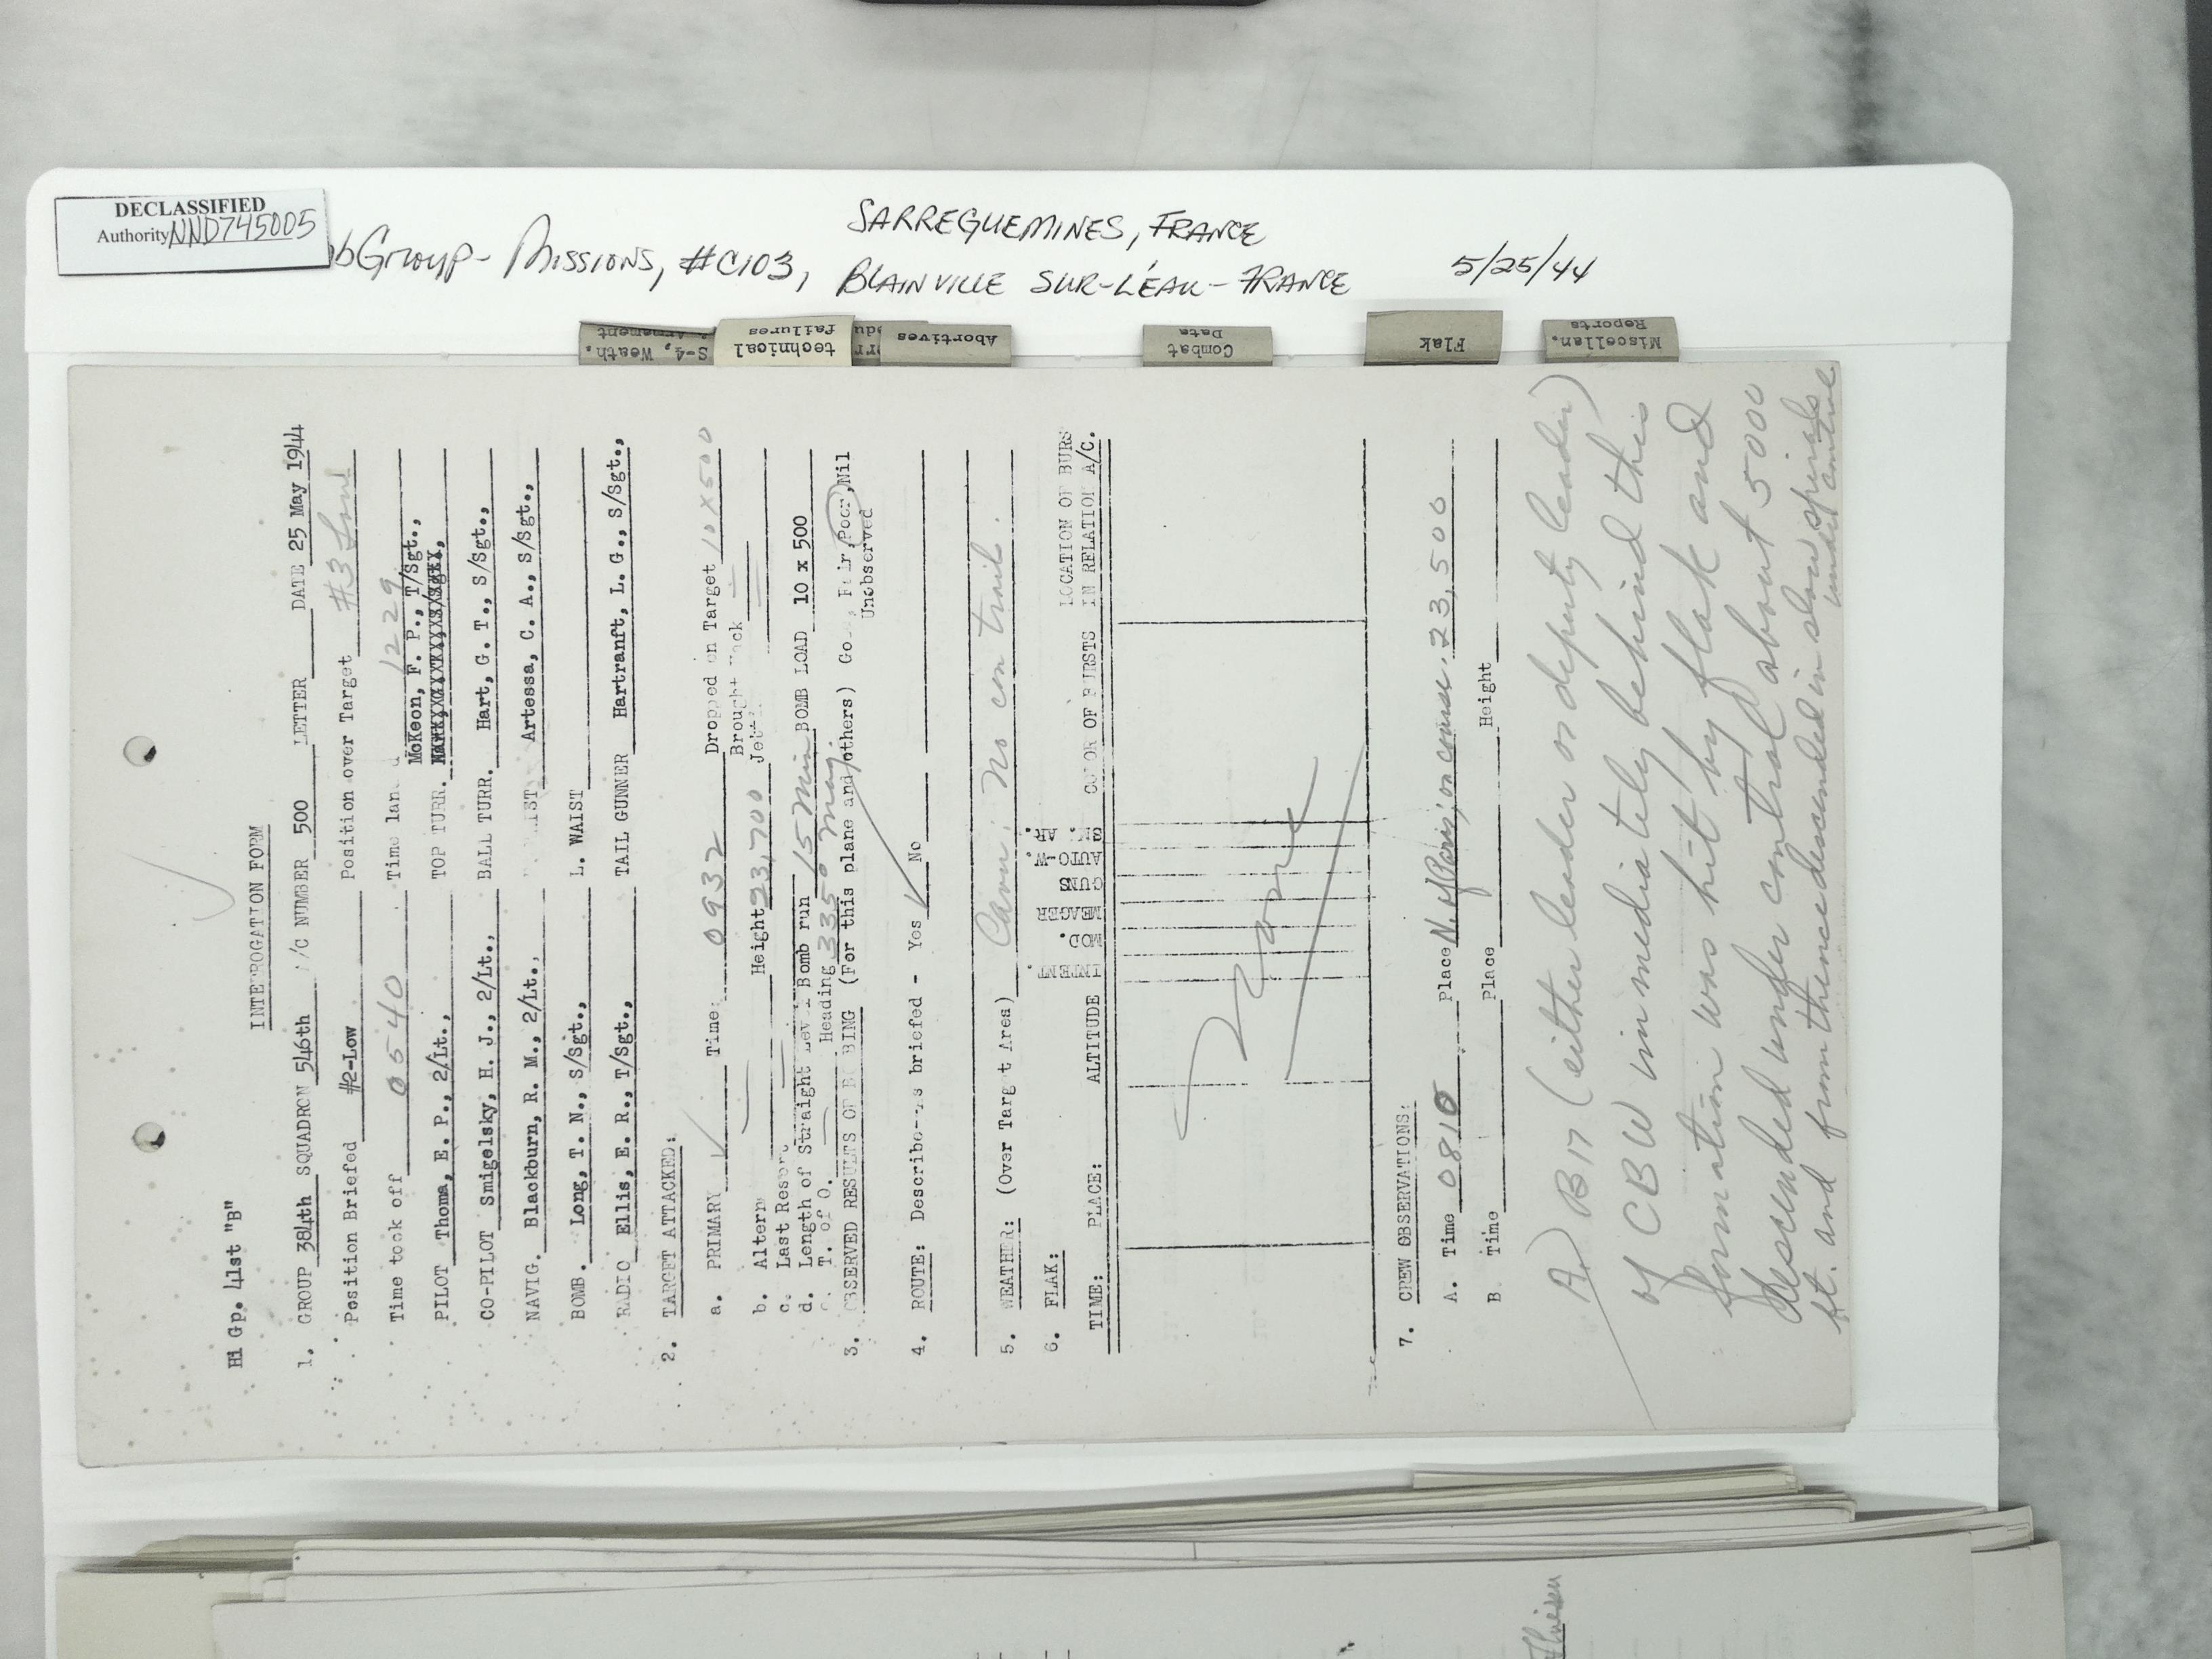 DECLASSIFIED
Authority NND745005
bGroup- Missions, #C103,
SARREGUEMINES, FRANCE
BLAINVILLE SUR-L'EAU- FRANCE
5/25/44
S-4, Weath.
Armament
technical
failures
Abortives
Combat
Data
Flak
Miscellan.
Reports
Hi Gp. 41st "B"
INTERROGATION FORM
1. GROUP 384th SQUADRON 546th A/C NUMBER 500 LETTER DATE 25 May 1944
Position Briefed #2-Low Position over Target #3
Time took off 0540 Time land 1229
McKeon, F. P., T/Sgt.,
PILOT Thoma, E. P., 2/Lt., TOP TURR.
CO-PILOT Smigelsky, H. J., 2/Lt., BALL TURR. Hart, G. T., S/Sgt.,
NAVIG. Blackburn, R. M., 2/Lt., WAIST Artessa, C. A., S/Sgt.,
BOMB. Long, T. N., S/Sgt., L. WAIST
RADIO Ellis, E. R., T/Sgt., TAIL GUNNER Hartranft, L. G., S/Sgt.,
2. TARGET ATTACKED:
a. PRIMARY ✓ Time: 0932 Dropped on Target 10 x 500
Brought Back
b. Altern Height 23,700 Jett
c. Last Resort
d. Length of Straight Level Bomb run 15 Min BOMB LOAD 10 x 500
T. of O. Heading 335° mag.
3. OBSERVED RESULTS OF BOMBING (For this plane and others) Good, Fair, Poor, Nil
Unobserved
4. ROUTE: Describe-as briefed - Yes ✓ No
5. WEATHER: (Over Target Area) Cavu; No con trail.
6. FLAK:
TIME: PLACE: ALTITUDE INTENT. MOD. MEAGER GUNS AUTO-W. SM. AR. COLOR OF BURSTS LOCATION OF BURS IN RELATION A/C.
None
7. CREW OBSERVATIONS:
A. Time 0810 Place N. of Paris; on course. 23,500
B. Time Place Height
A) B17 (either leader or deputy leader)
of CBW immediately behind this
formation was hit by flak and
descended under control about 5000
ft. and from thence descended in slow spirals
under control